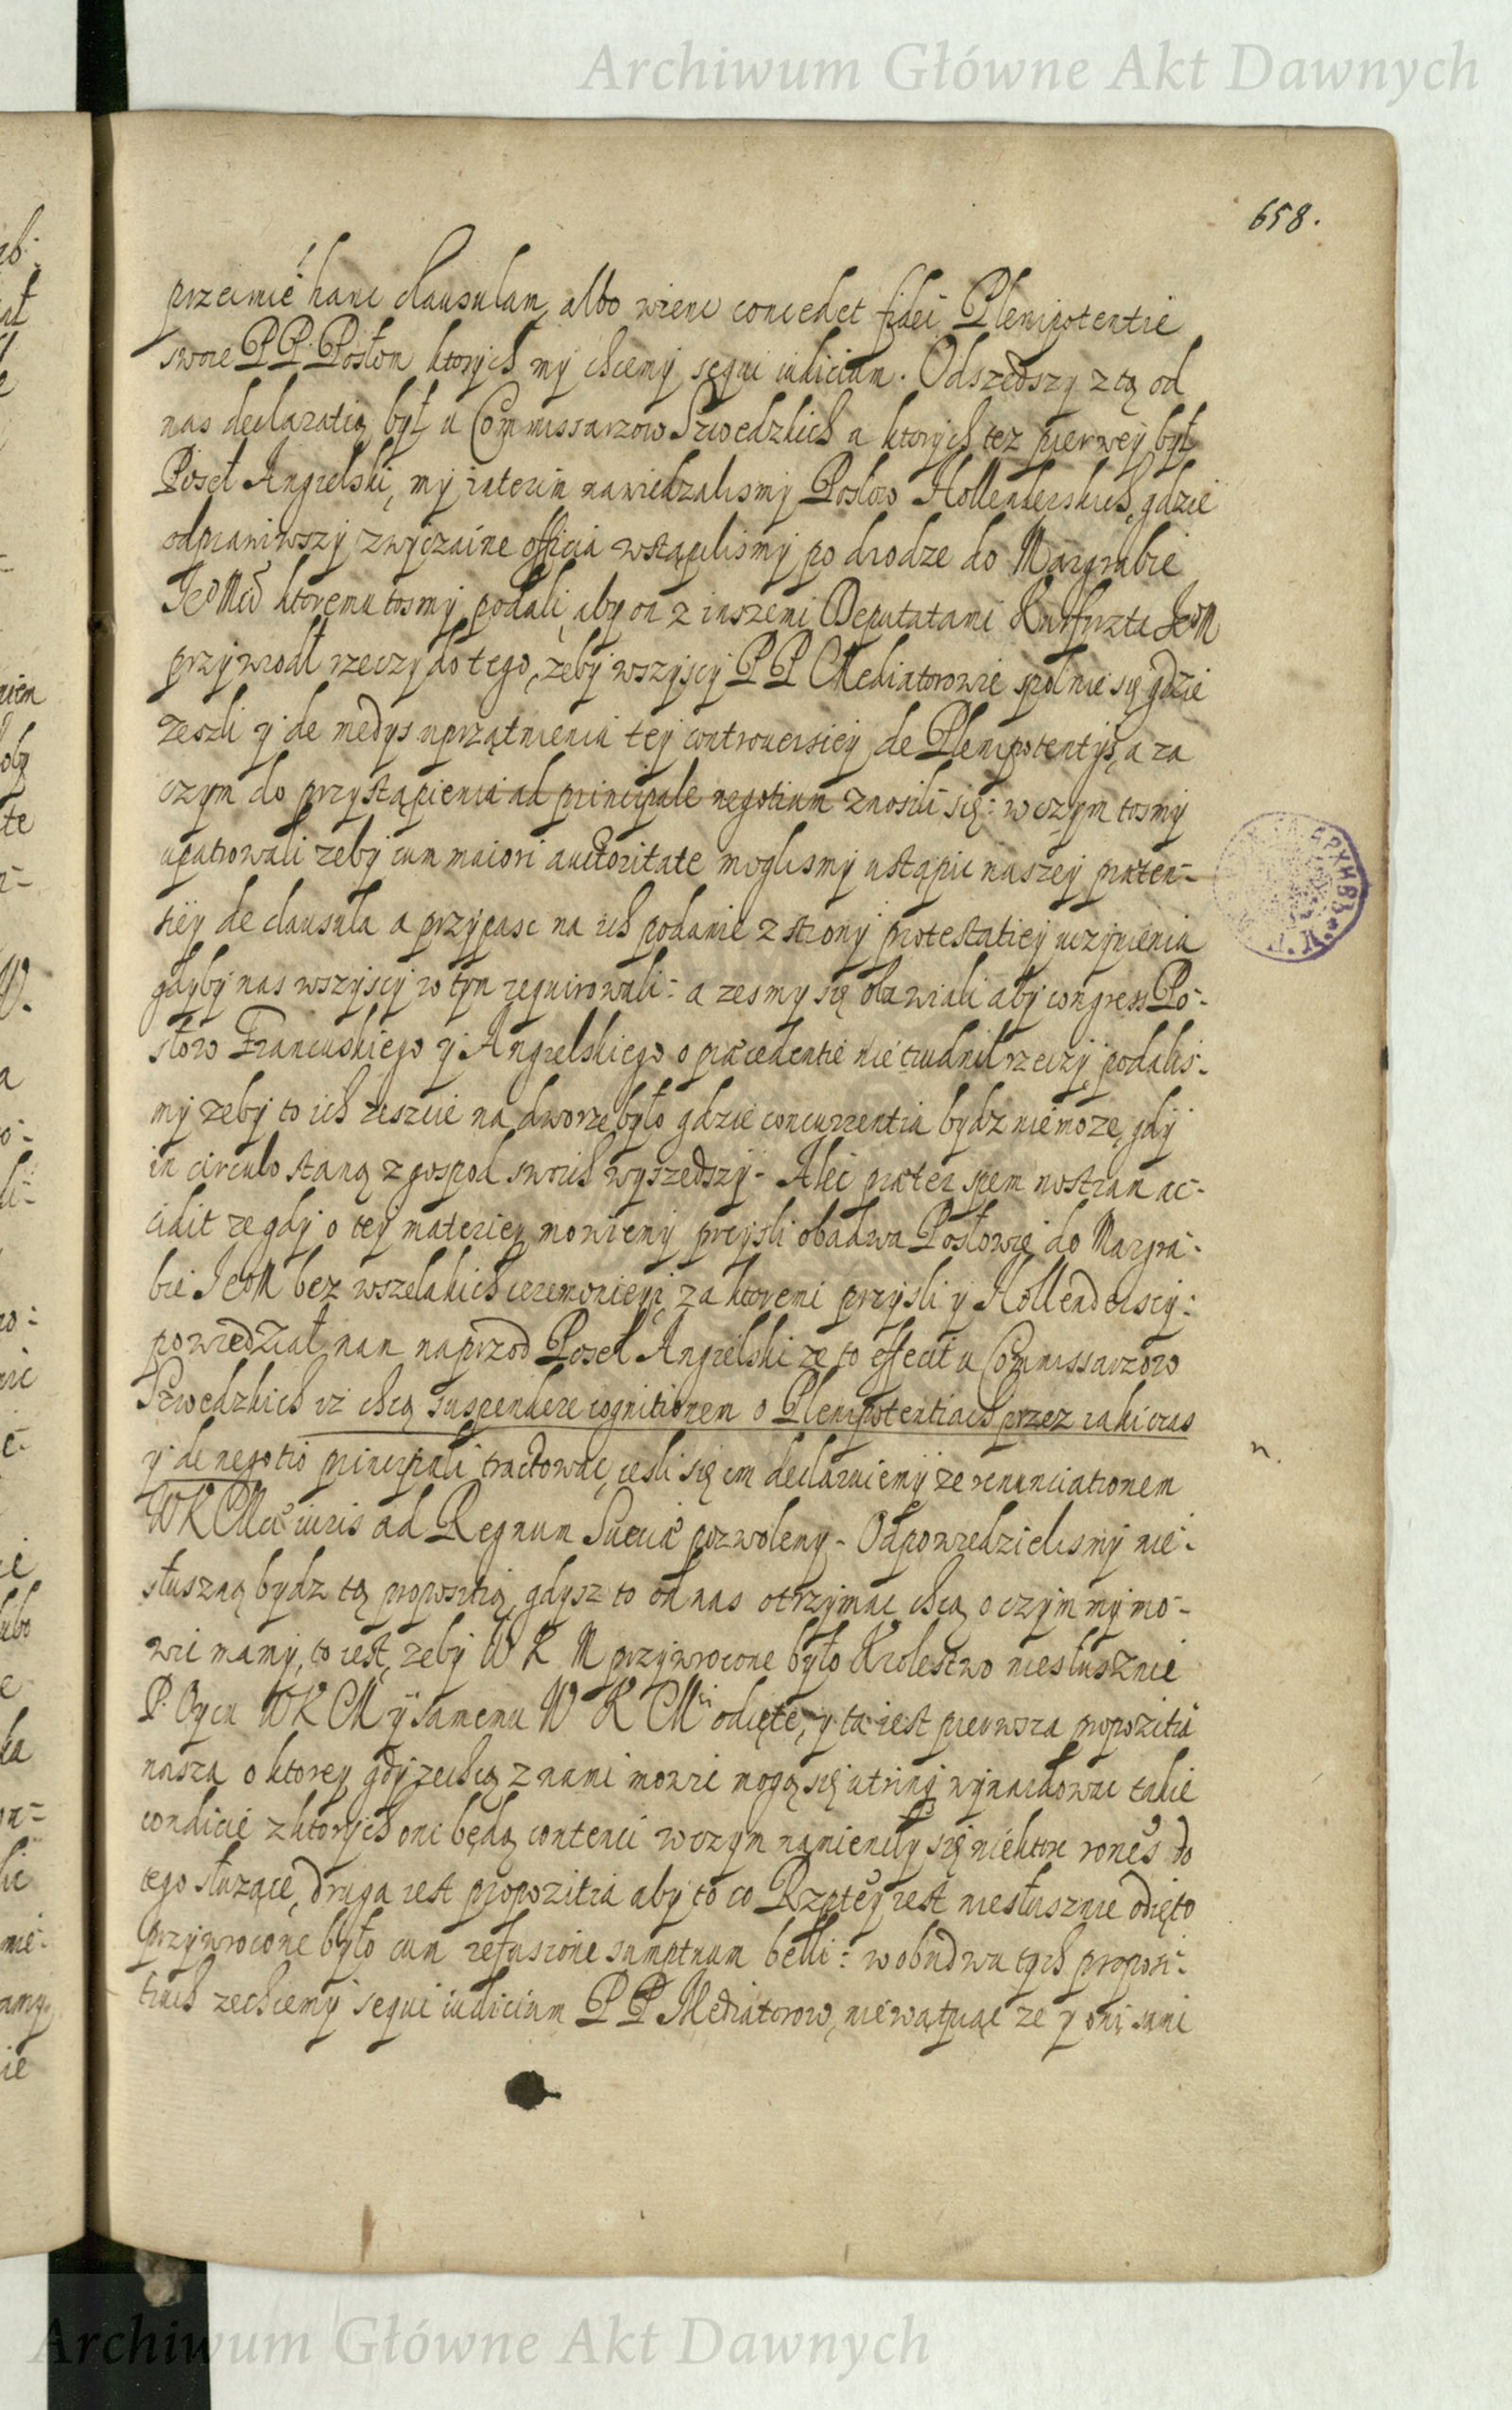 Archiwum Główne Akt Dawnych
658.
przeimie hanc clausulam, albo wienc concedet fidei Plenipotentie
swoie PP. Posłom ktorych my chcemy sequi iudicium. Odszedszy z tą od
nas declaratią był u Commissarzow Szwedzkich u ktorych tez pierwey był
Poseł Angielski, my interim nawiedzalismy Posłow Hollenderskich, gdzie
odprawiwszy zwyczaine officia wstąpilismy po drodze do Margrabie
Jeo Mci ktoremu tosmy podali, aby on z inszemi Deputatami Kurfirszta JeoM
przywiodł rzeczy do tego, zeby wszyscy PP Mediatorowie spolnie się gdzie
zeszli y de medys uprzątnienia tey controuersiey de Plenipotentys, a za
czym do przystąpienia ad principale negotium znosili się: w czym tosmy
upatrowali zeby cum maiori auctoritate moglismy ustąpic naszey praeten-
siey de clausula a przypasc na ich podanie z strony protestatiey uczynienia
gdyby nas wszyscy w tym requirowali: a zesmy się obawiali aby congress Po-
słow Francuskiego y Angielskiego o praecedentie nie trudnił rzeczy, podalis-
my zeby to ich zeszcie na dworze było gdzie concurrentia bydz nie moze, gdy
in circulo staną z gospod swoich wyszedszy. Alec praeter spem nostram ac-
cidit ze gdy o tey materiey mowiemy przysli obadwa Posłowie do Margra-
bie JeoM bez wszelakich ceremonieyi, za ktoremi przysli y Hollenderscy:
powiedział nam naprzod Poseł Angielski ze to effecit u Commissarzow
Szwedzkich iz chcą suspendere cognitionem o Plenipotentiach przez iaki czas
y de negotio principali tractowac, iesli się im declaruiemy ze renunciationem
WKMci iuris ad Regnum Sueciae pozwolemy. Odpowiedzielismy nie-
słuszną bydz tą propositią, gdysz to od nas otrzymac chcą o czym my mo-
wic mamy, to iest, zeby W K M przywrocone było Krolestwo niesłusznie
P. Oycu WKM y samemu W K Mci odięte, y ta iest pierwsza propozitia
nasza o ktorey gdy zechcą z nami mowic mogą się utrinq wynaidowac takie
condicie z ktorych oni będą contenci w czym namieniły się niektore do
tego słuzące, druga iest propozitia aby to co Rzptey iest niesłusznie odięto
przywrocone było cum refusione sumptuum belli: w obudwu tych proposi-
tiach zechcemy sequi iudicium PP Mediatorow, nie wątpiąc ze y oni sami
Archiwum Główne Akt Dawnych